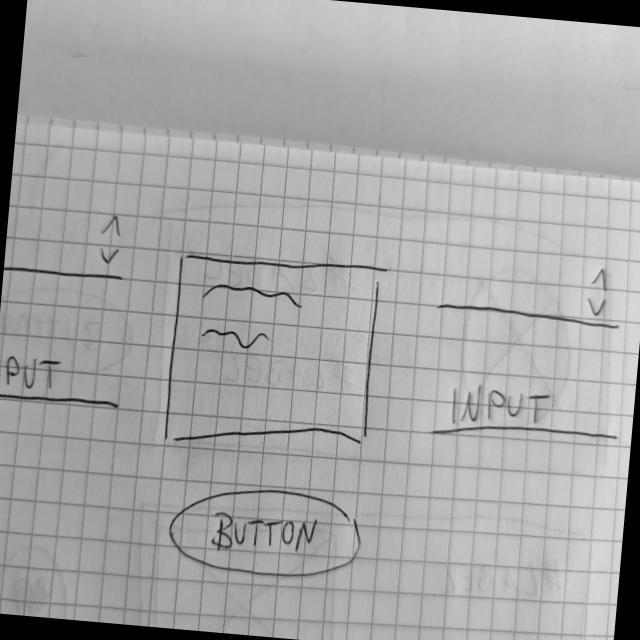 PUT
INPUT
BUTTON